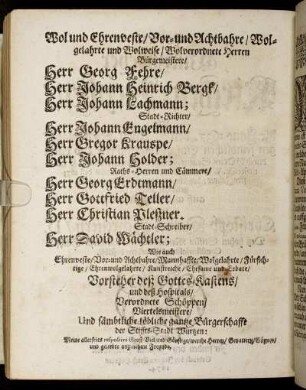 Wol und Ehrenveste/ Vor- und Achtbahre/ Wol-
gelahrte und Wolweise/ Wolverordnete Herren
Bürgemeistere/
Herr Georg Fehre/
Herr Johann Heinrich Bergk/
Herr Johann Lachmann;
Stadt-Richter/
Herr Johann Engelmann/
Herr Gregor Krauspe/
Herr Johann Holder;
Raths-Herren und Cämmere/
Herr Georg Erdtmann/
Herr Gottfried Teller/
Herr Christian Pleßner.
Stadt-Schreiber/
Herr David Wächtler;
Wie auch
Ehrenveste/ Vor- und Achtbahre/ Mannhaffte/ Wolgelahrte/ Fürsich-
tige/ Ehrenwolgelahrte/ Kunstreiche/ Ehrsame und
Vorsteher deß Gottes-Kastens/
und deß Hospitals/
Verordnete Schöppen/
Viertelsmeistere/
Und sämbtliche löbliche gantze Bürgerschafft
der Stiffts-Stadt Wurtzen;
Meine allerseits und Günstige/ Herren/
und Freunde.